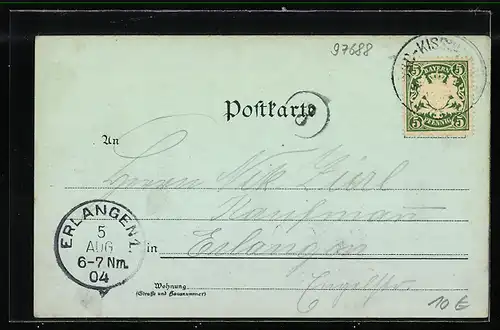 97688
-KISS
5 BAYERN 5
5 PFENNIG 5
Postkarte
An
Herrn Nik. Zierl
Kaufmann
in Erlangen
ERLANGEN 1.
5
AUG
6-7 Nm.
04
Wohnung
(Straße und Hausnummer)
10 €